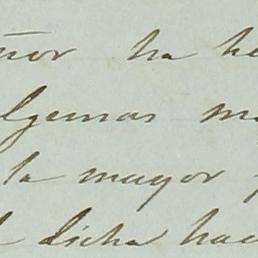 ñor ha he
lgunas m
la mayor
dicha hac